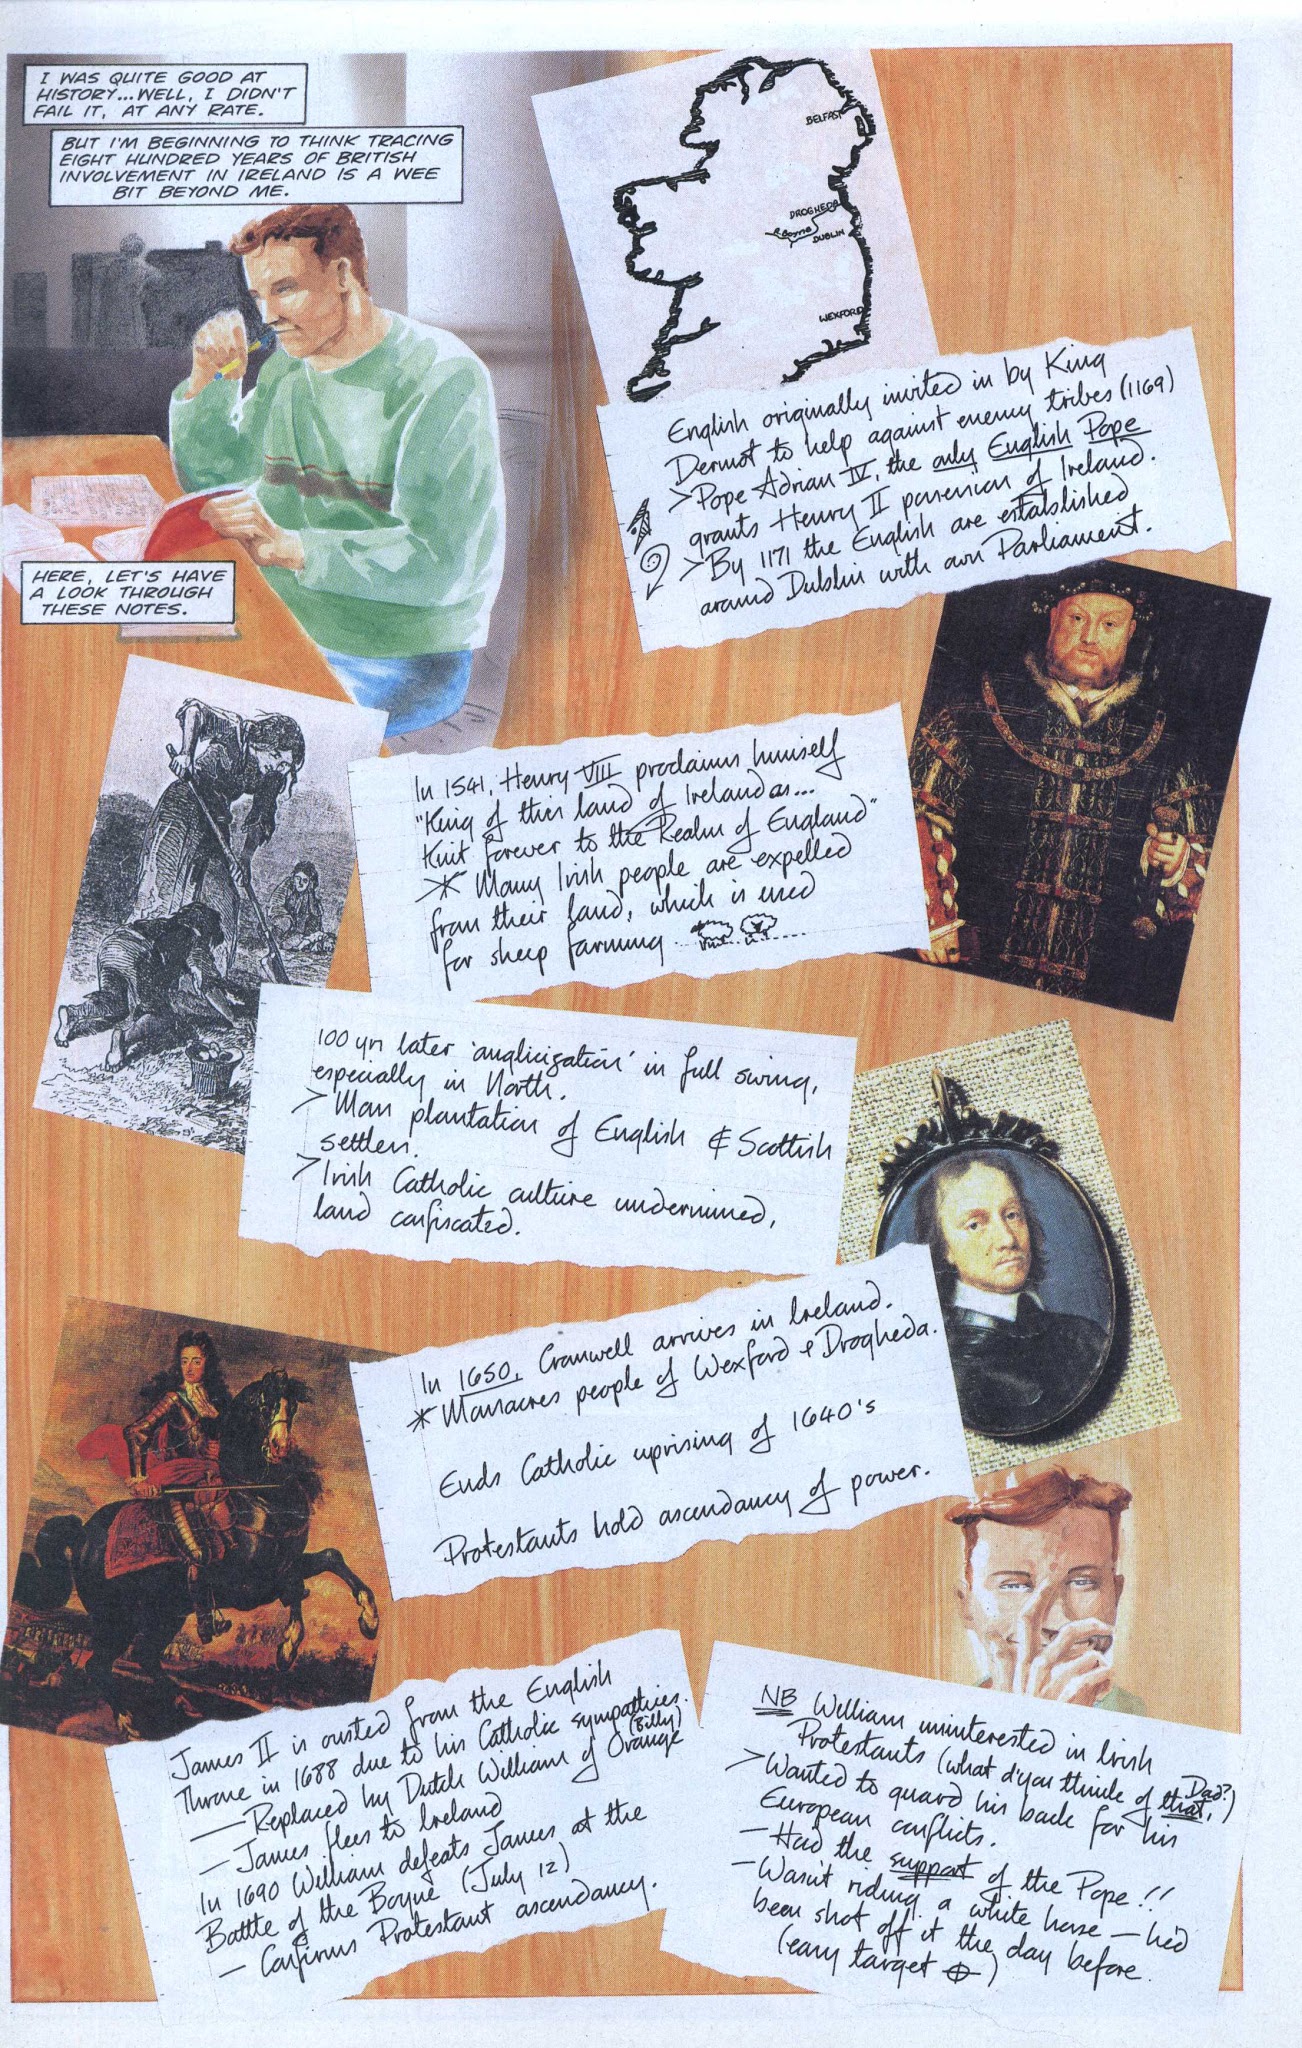 I WAS QUITE GOOD AT
HISTORY...WELL, I DIDN'T
FAIL IT, AT ANY RATE.
BUT I'M BEGINNING TO THINK TRACING
EIGHT HUNDRED YEARS OF BRITISH
INVOLVEMENT IN IRELAND IS A WEE
BIT BEYOND ME.
BELFAST
DROGHEDA
R. Boyne
DUBLIN
WEXFORD
English originally invited in by King
Dermot to help against enemy tribes (1169)
>Pope Adrian IV, the only English Pope
grants Henry II possession of Ireland.
>By 1171 the English are established
around Dublin with own Parliament.
HERE, LET'S HAVE
A LOOK THROUGH
THESE NOTES.
In 1541, Henry VIII proclaims himself
"King of this land of Ireland as...
Knit forever to the Realm of England"
* Many Irish people are expelled
from their land, which is used
for sheep farming
100 yrs later 'anglicization' in full swing,
especially in North.
> Mass plantation of English & Scottish
settlers.
> Irish Catholic culture undermined,
land confiscated.
In 1650, Cromwell arrives in Ireland.
* Massacres people of Wexford & Drogheda.
Ends Catholic uprising of 1640's
Protestants hold ascendancy of power.
James II is ousted from the English
Throne in 1688 due to his Catholic sympathies.
— Replaced by Dutch William (Billy) of Orange
— James flees to Ireland
In 1690 William defeats James at the
Battle of the Boyne (July 12)
— Confirms Protestant ascendancy.
NB William uninterested in Irish
Protestants (what d'you think of that, Dad?)
> Wanted to guard his back for his
European conflicts.
— Had the support of the Pope!!
— Wasn't riding a white horse — he'd
been shot off it the day before.
(easy target)